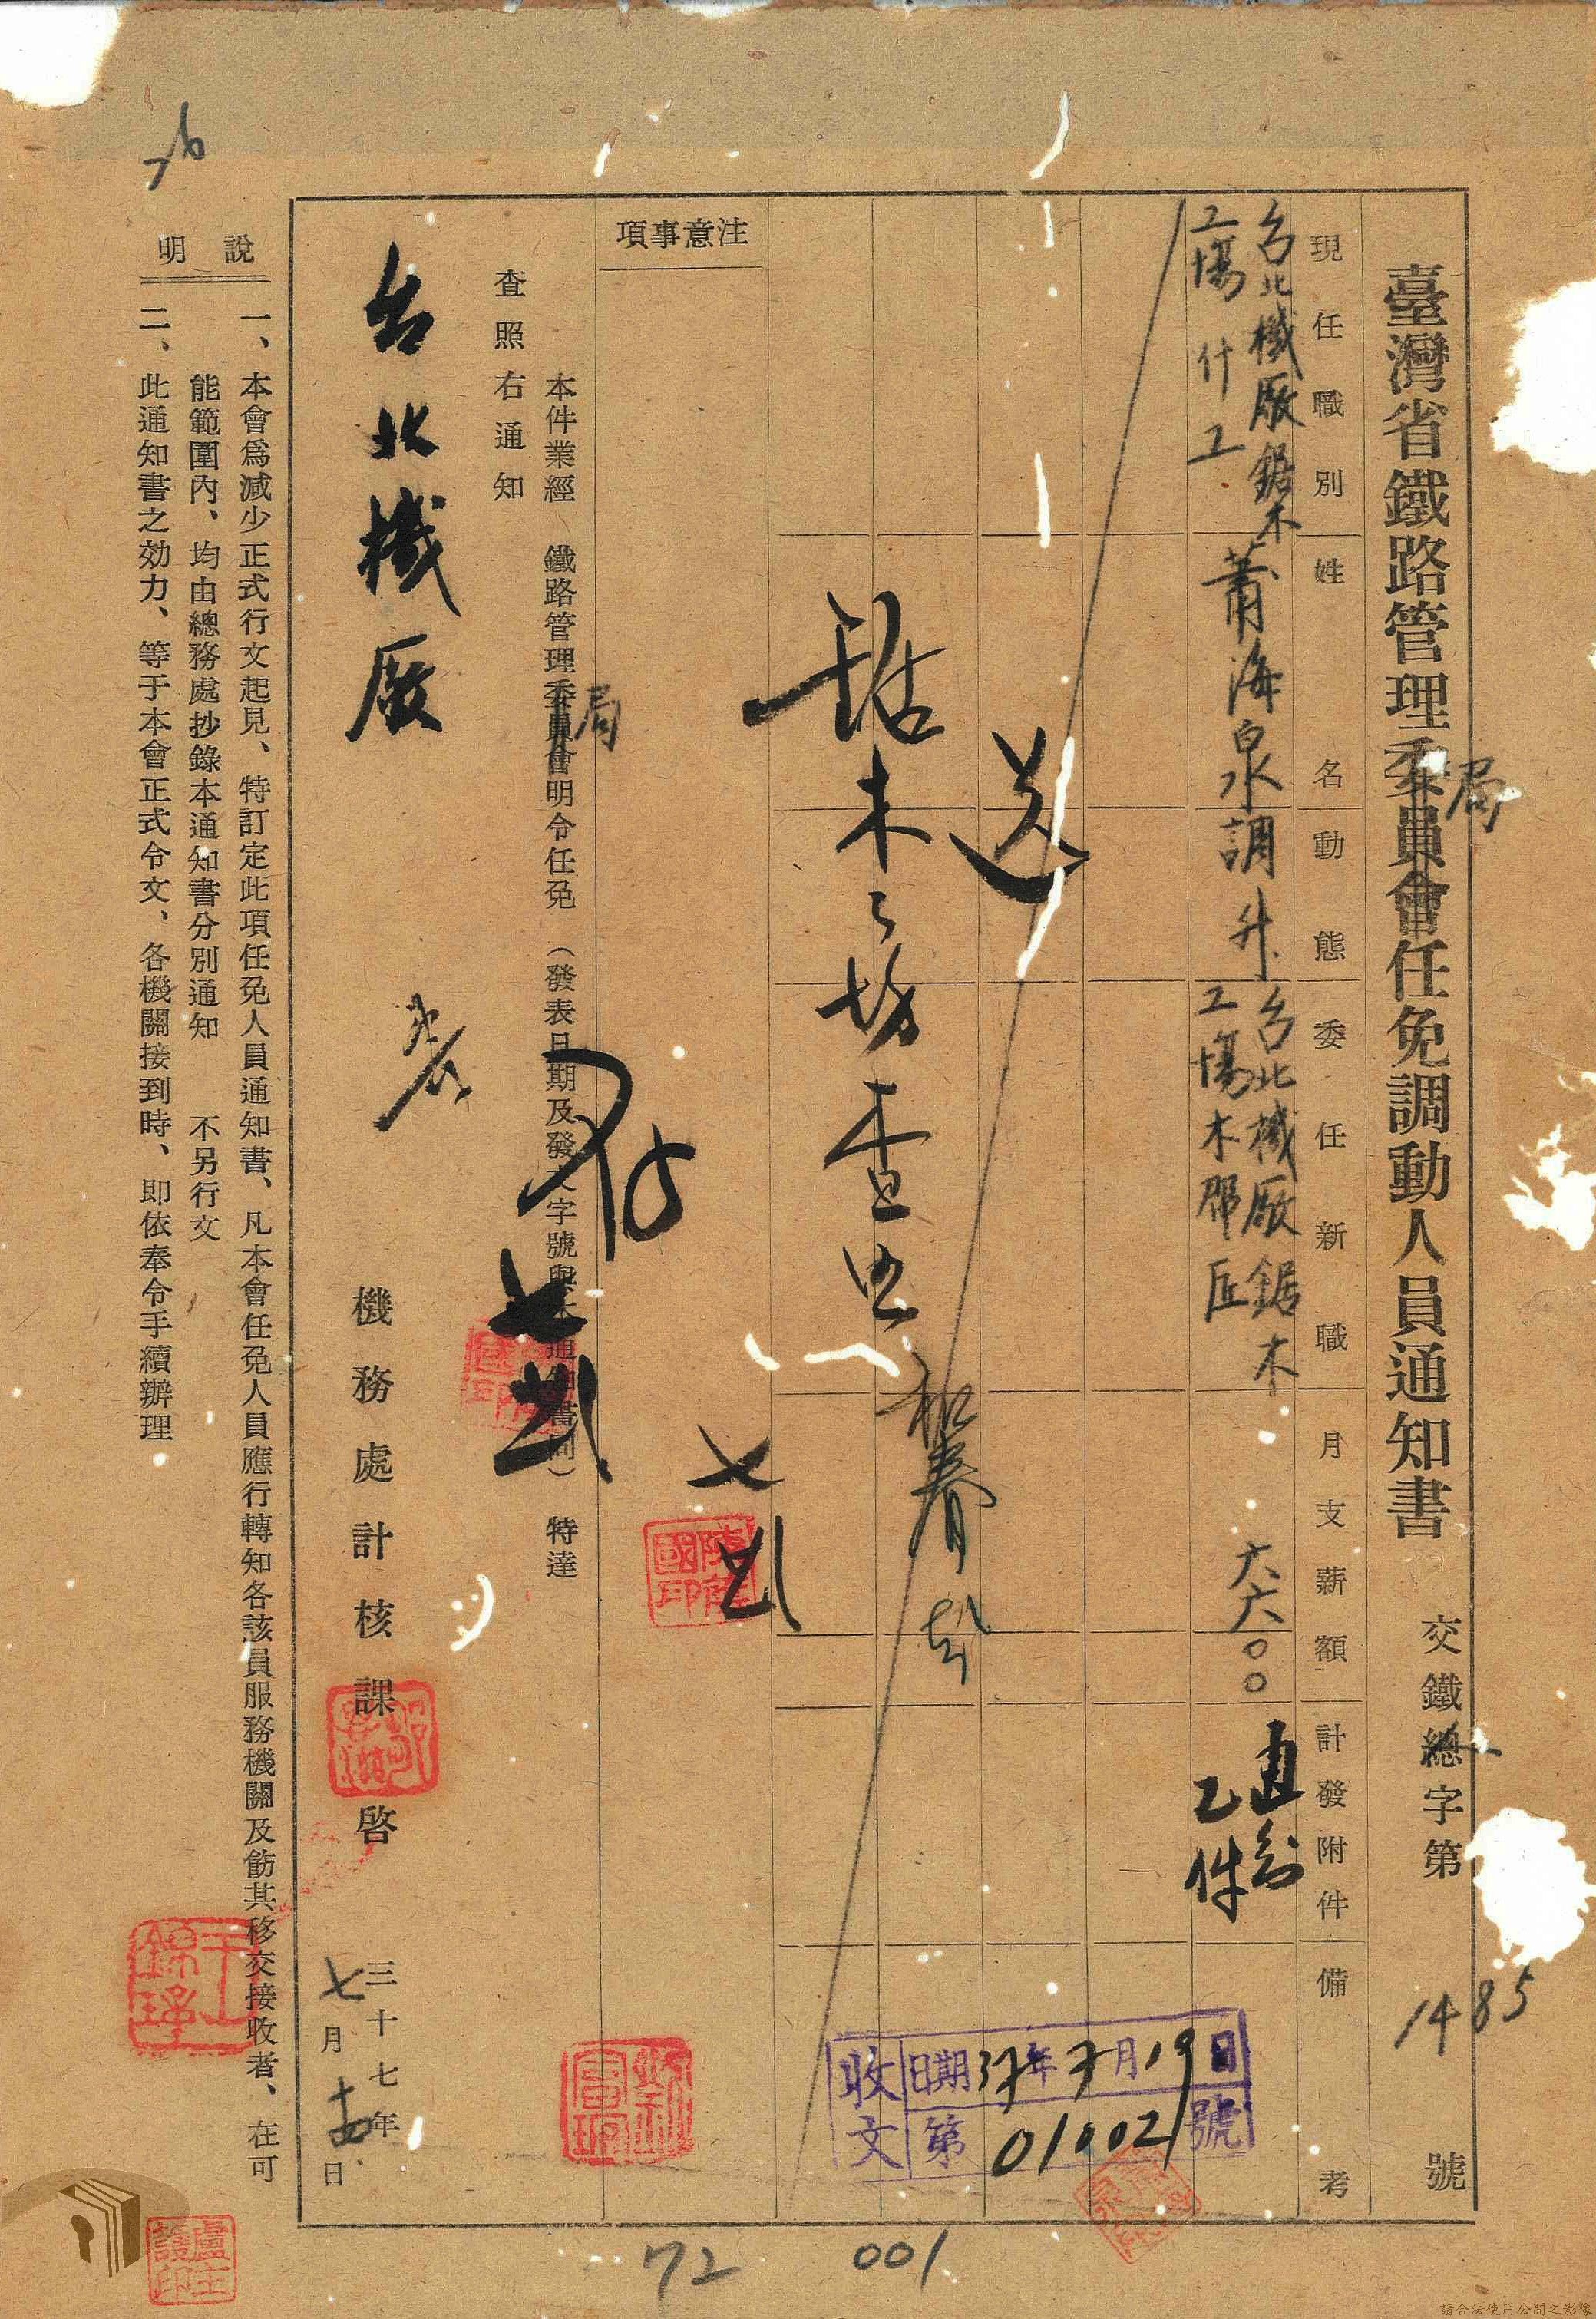 臺灣省鐵路管理委員會任免調動人員通知書
局
交鐵總字第 1485 號
現任職別
姓名
動態
委任新職
月支薪額
計發附件
備考
台北機廠鋸木
工場什工
蕭海泉
調升
台北機廠鋸木
工場木那匠
六六〇〇
通知
乙件
送
收文
日期37年7月19日
第01002號
注意事項
本件業經 鐵路管理委員會明令任免 (發表日期及發文字號與本通知書同) 特達
局
查照右通知
存
台北機廠
機務處計核課 啓
三十七年
七月十五日
說明
一、本會爲減少正式行文起見、特訂定此項任免人員通知書、凡本會任免人員應行轉知各該員服務機關及飭其移交接收者、在可
能範圍內、均由總務處抄錄本通知書分別通知 不另行文
二、此通知書之効力、等于本會正式令文、各機關接到時、即依奉令手續辦理
76
72
001
請合法使用公開之影像